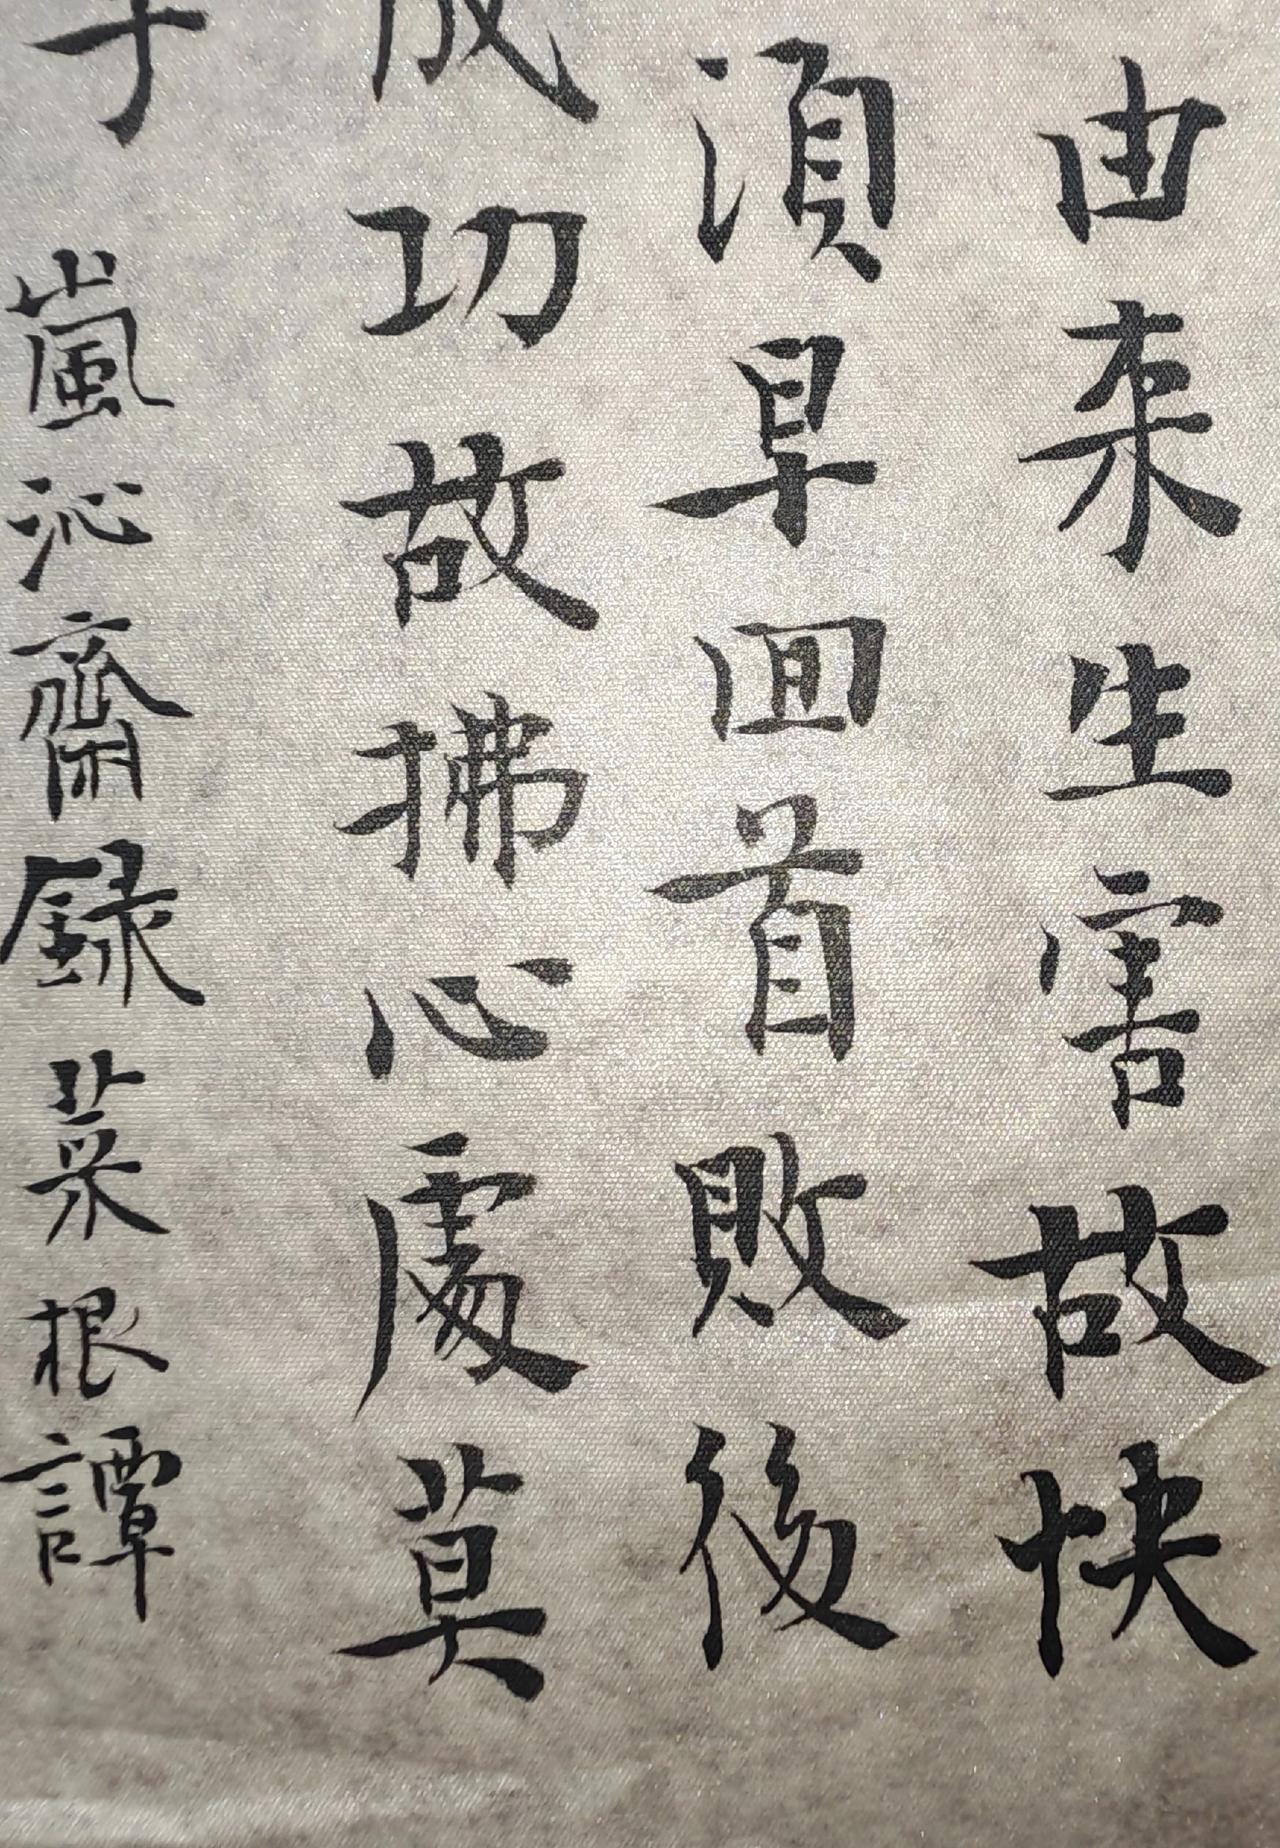 由来生害故快
須早回首敗後
成功故拂心處莫
手 嵐沁齋錄菜根譚